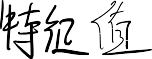 特征值